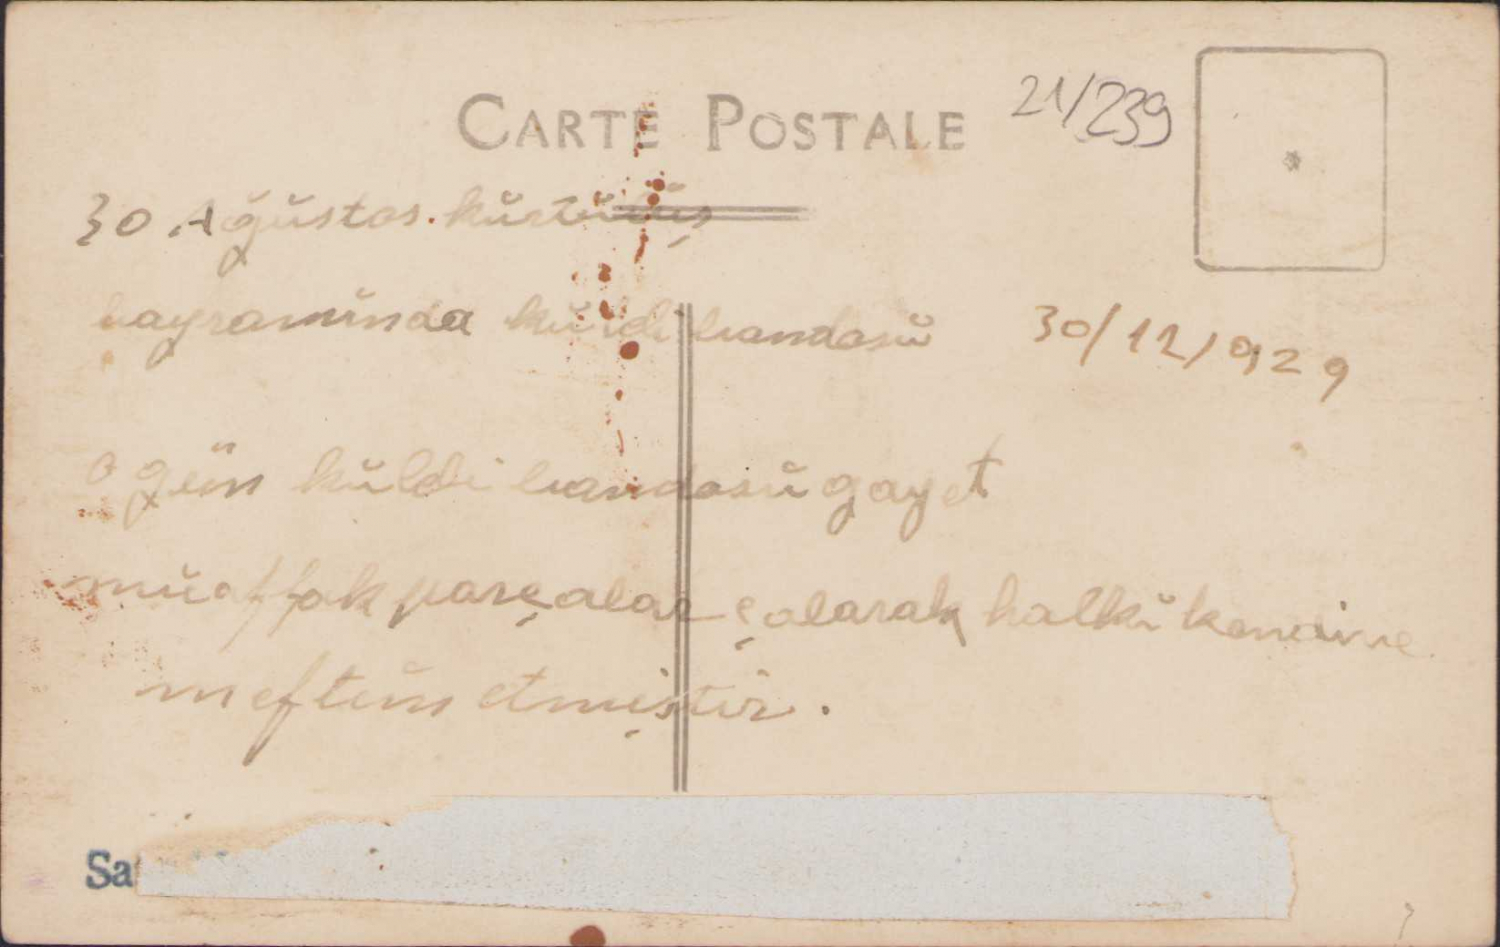 CARTE POSTALE
21/239
30 Ağustos. kürtülüş
bayramında küldi bandosü
30/12/929
o gün küldi bandosü gayet
müaffak parçalar çalarak halkı kendine
meftün etmiştir.
Sa